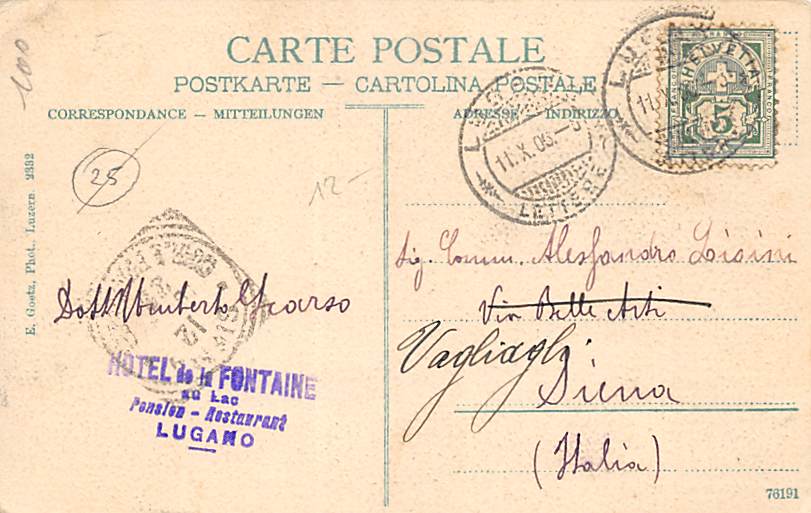 100
CARTE POSTALE
POSTKARTE — CARTOLINA POSTALE
CORRESPONDANCE – MITTEILUNGEN
ADRESSE – INDIRIZZO
HELVETIA
5
LETTERE
11.X.06
25
12-
E. Goetz, Phot., Luzern. 2332
Sig. Comm. Alessandro Lisini
Via Belle Arti
Vagliagli
Siena
(Italia)
Dott Umberto
HOTEL de la FONTAINE
au Lac
Pension - Restaurant
LUGANO
76191